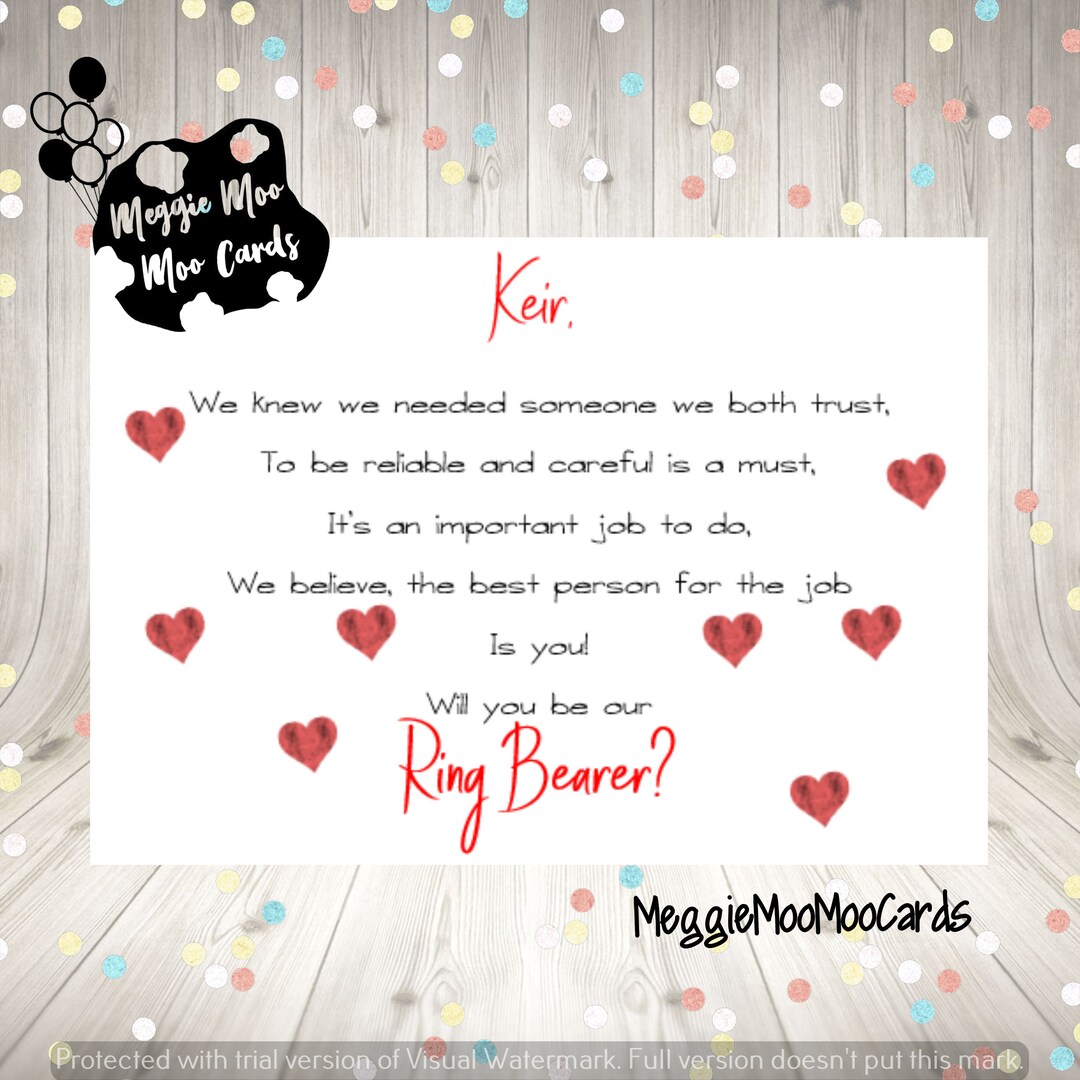 Meggie Moo
Moo Cards
Keir,
We knew we needed someone we both trust,
To be reliable and careful is a must,
It's an important job to do,
We believe, the best person for the job
Is you!
Will you be our
Ring Bearer?
MeggieMooMooCards
Protected with trial version of Visual Watermark. Full version doesn't put this mark.